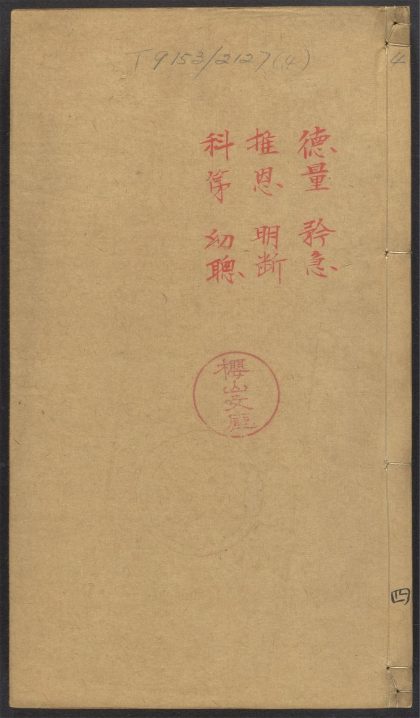 T 9153/2127(4)
4
德量 矜急
推恩 明断
科第 幼聰
櫻山文庫
四